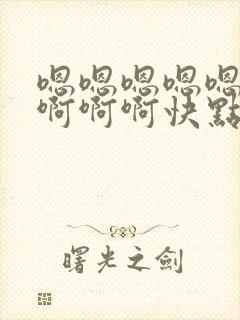 嗯嗯嗯嗯嗯
啊啊啊快點
曙光之劍